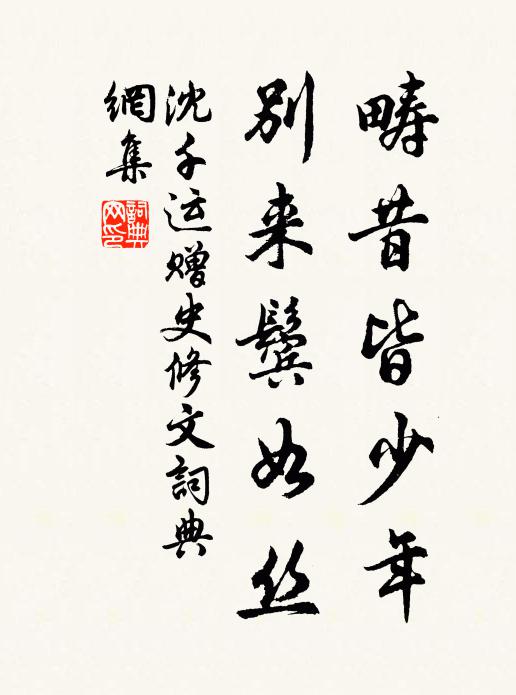 畴昔皆少年
别来鬓如丝
沈千运赠史修文詞典
網集
詞典
网印